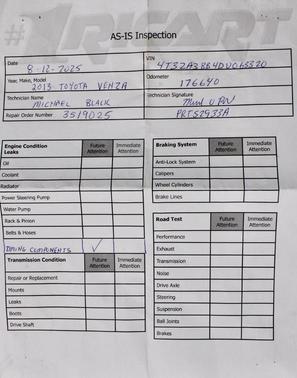 #1 RICART
AS-IS Inspection
Date
8-12-2025
VIN
4T3ZA3BB4DU065520
Year, Make, Model
2013 TOYOTA VENZA
Odometer
176640
Technician Name
MICHAEL BLACK
Technician Signature
Repair Order Number
3519025
Engine Condition Future Immediate
Leaks Attention Attention
Oil
Coolant
Radiator
Power Steering Pump
Water Pump
Rack & Pinion
Belts & Hoses
TIMING COMPONENTS ✓
Transmission Condition Future Immediate
Attention Attention
Repair or Replacement
Mounts
Leaks
Boots
Drive Shaft
Braking System Future Immediate
Attention Attention
Anti-Lock System
Calipers
Wheel Cylinders
Brake Lines
Road Test Future Immediate
Attention Attention
Performance
Exhaust
Transmission
Noise
Drive Axle
Steering
Suspension
Ball Joints
Brakes